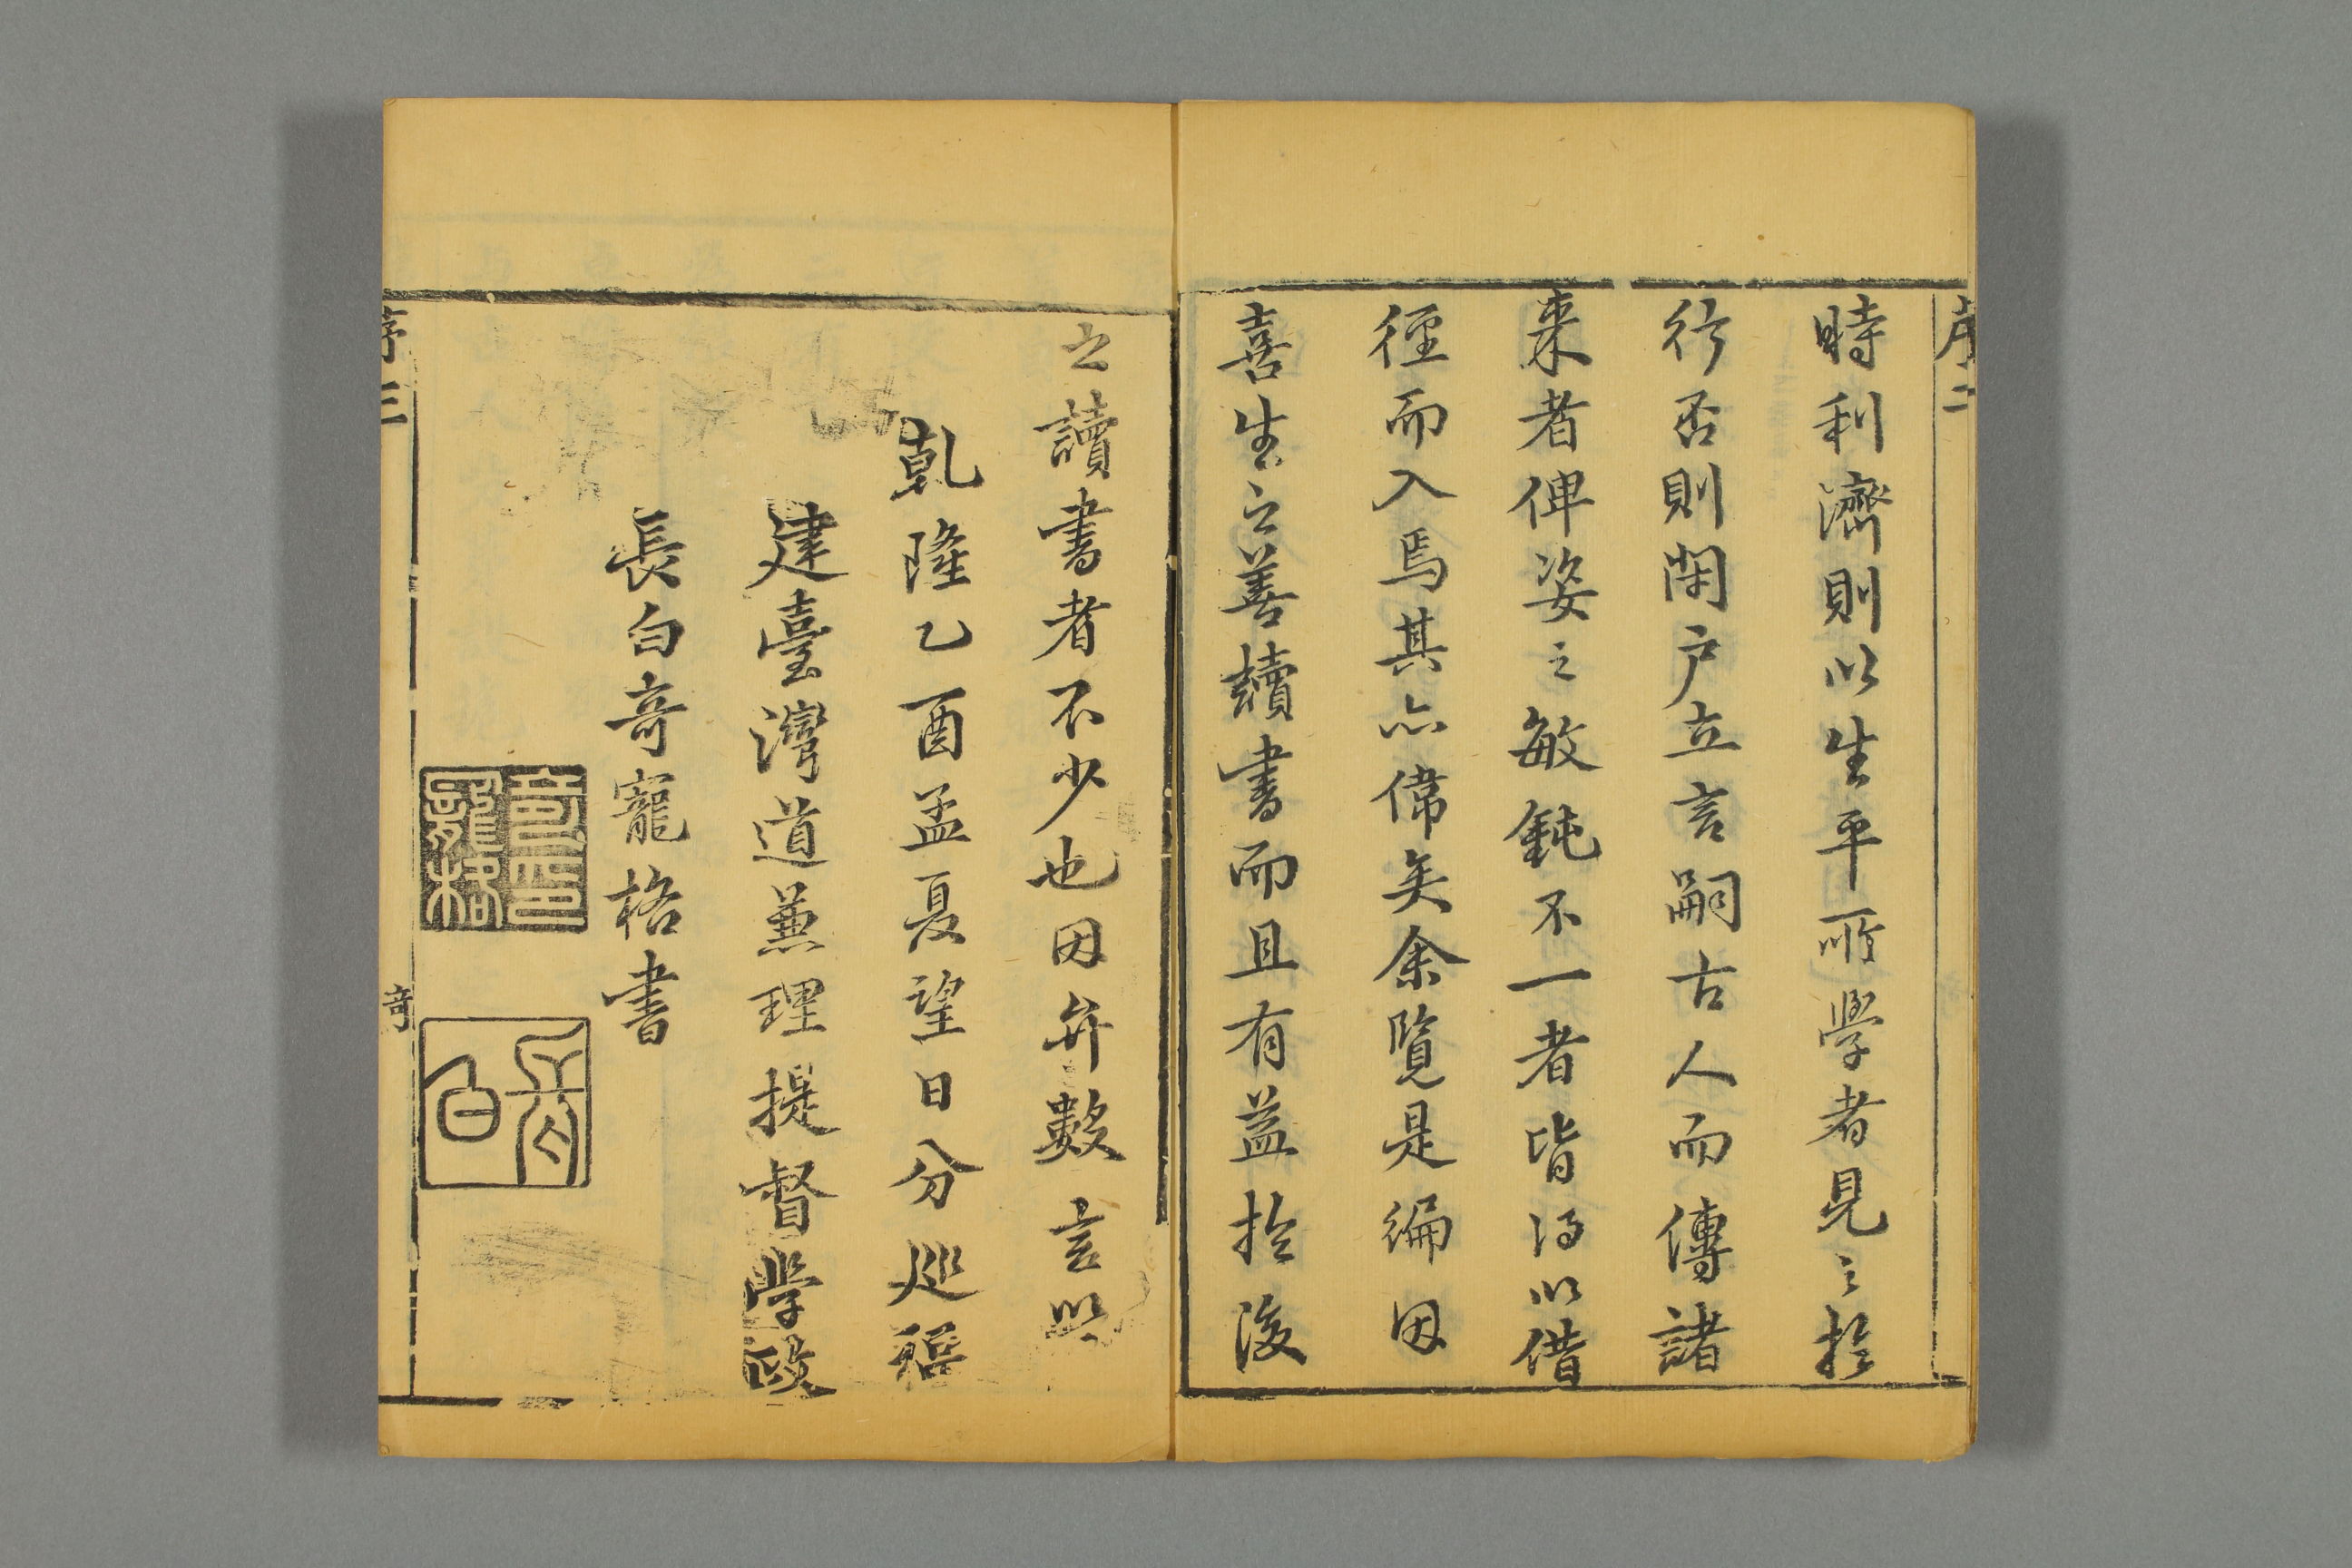 序二
時利濟則以生平所學者見之於
行否則閉户立言嗣古人而傳諸
来者俾姿之敏鈍不一者皆得以借
徑而入焉其亦偉矣余覽是編因
喜生之善讀書而且有益於後
之讀書者不少也因弁數言以
乾隆乙酉孟夏望日分巡福
建臺灣道兼理提督學政
長白奇寵格書
長白
序三
奇